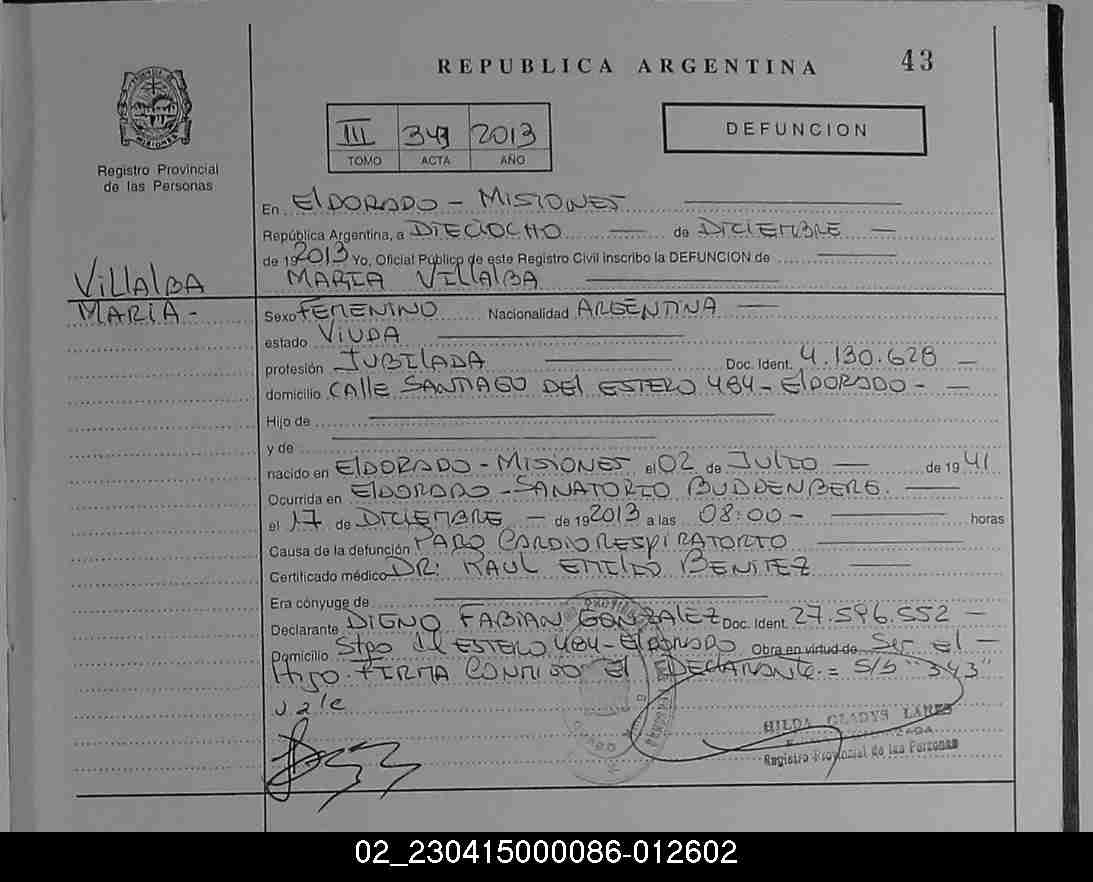 REPUBLICA ARGENTINA 43
III 343 2013
TOMO ACTA AÑO
DEFUNCION
Registro Provincial
de las Personas
En ElDORADO - MISIONES
República Argentina, a DIECIOCHO de DICIEMBRE
de 192013 Yo, Oficial Público de este Registro Civil inscribo la DEFUNCION de
MARIA VILLALBA
VillAlBA
MARIA -
Sexo FEMENINO Nacionalidad ARGENTINA
estado VIUDA
profesión JUBILADA Doc. Ident. 4.130.628
domicilio CAlle SANTIAGO DEl ESTERO 484 - ElDORADO -
Hijo de
y de
nacido en ElDORADO - MISIONES el 02 de JULIO de 1941
Ocurrida en ElDORADO - SANATORIO BUDDENBERG.
el 17 de DICIEMBRE de 192013 a las 08:00 - horas
Causa de la defunción PARO CARDIORESPIRATORIO
Certificado médico DR: RAUL EMILIO BENITEZ
Era cónyuge de
Declarante DIGNO FABIAN GONZALEZ Doc. Ident. 27.596.552 -
Domicilio Stgo del ESTERO 484 - ElDORADO Obra en virtud de Ser el -
Hijo. FIRMA CONMIGO El DECLARANTE.= S/S "343"
vale
HILDA GLADYS LARES
Registro Provincial de las Personas
02_230415000086-012602